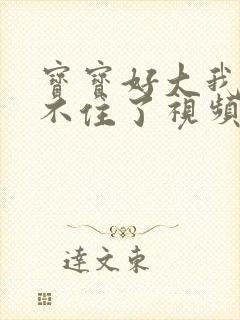 寶寶好大我
不住了視頻
達文東